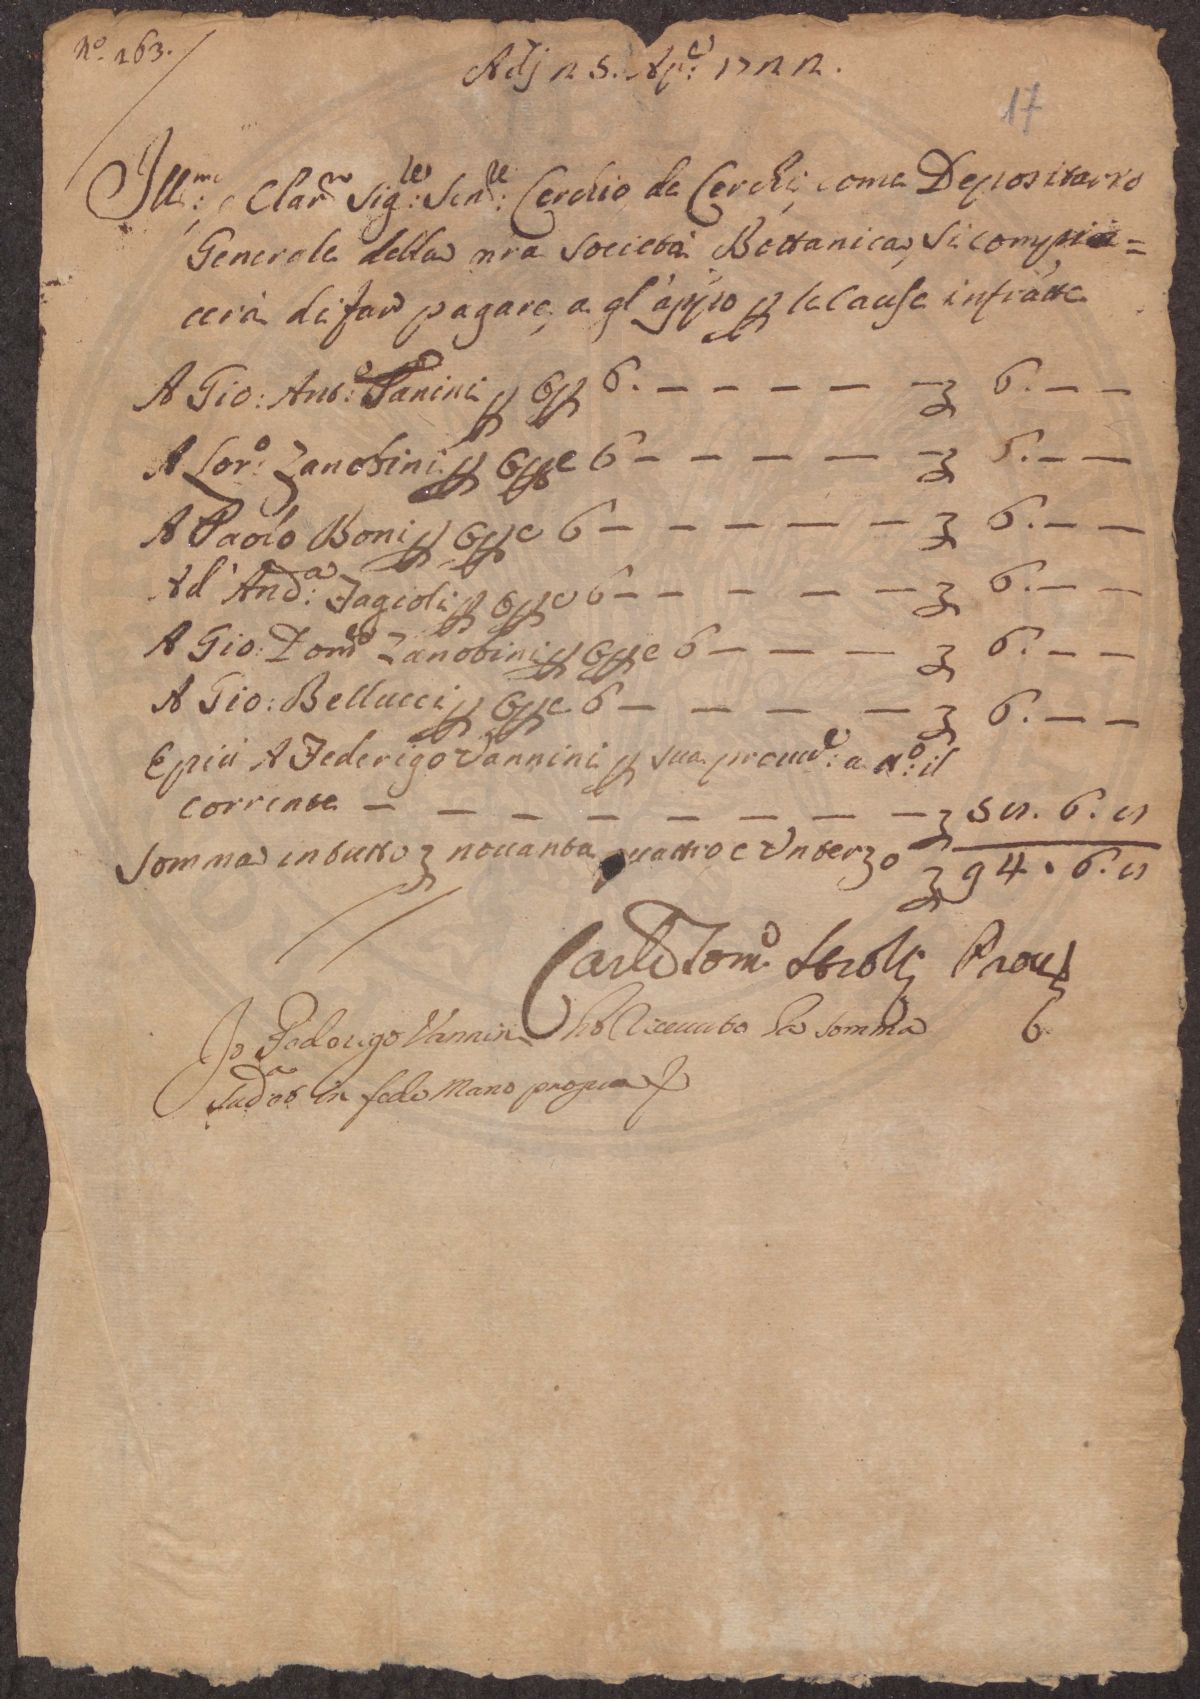 N.o 263.
Adj 25. Ap.e 1722.
17
Ill.mo e Clar.mo Sig.re Sen.re Cerchio de Cerchi, come Depositario
Generale della nra Società Bottanica, si compia=
cerà di far pagare, a gl'appio p le Cause infratte
A Gio: Ant.o Panini p 6 6. — — — — — 6. — —
A Lor.o Zanobini p e 6 — — — — — 6. — —
A Paolo Boni p e 6 — — — — — 6. — —
Ad' And.a Fagioli p e 6 — — — — — 6. — —
A Gio: Dom.co Zanobini p e 6 — — — — 6. — —
A Gio: Bellucci p e 6 — — — — 6. — —
E più A Federigo Vannini p sua prouu.e a tt.o il
corrente — — — — — — — — 58. 6. 8
Somma in tutto novanta quattro e Un terzo 94. 6. 8
Carlo Tom.o Strozzi Prou.e
Io Federigo Vannini ho Riceuuto la somma
Sud.a in fede Mano propia
6